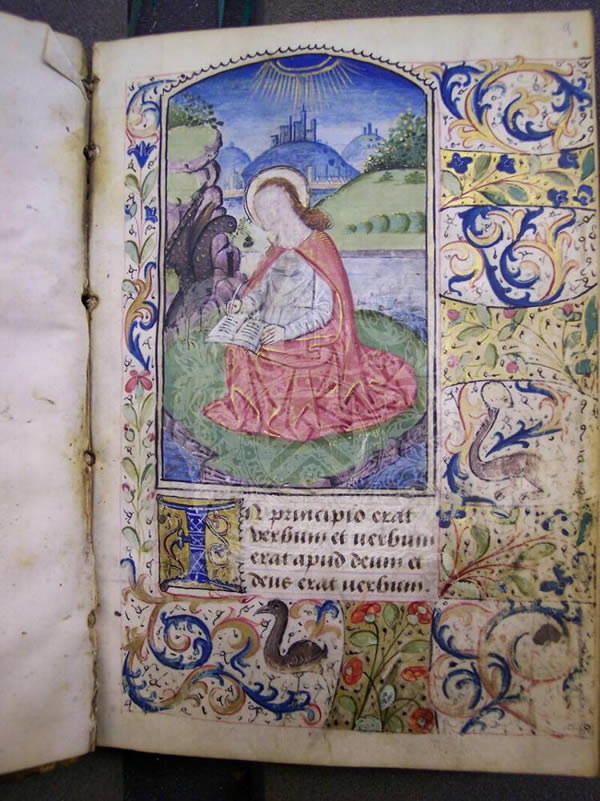 In principio erat
verbum et uerbum
erat apud deum et
deus erat uerbum